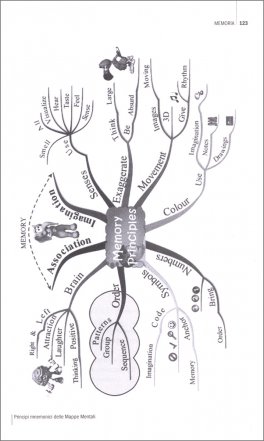 MEMORIA 123
MEMORY
Memory
Principles
Imagination
Association
Senses
Use
All
Visualize
Hear
Taste
Feel
Sense
Smell
Exaggerate
Think
Large
Be
Absurd
Movement
Images
Moving
3D
Give
Rhythm
Colour
Use
Imagination
Notes
Drawings
Numbers
Bring
Order
Symbols
Code
Imagination
Anchor
Memory
Order
Patterns
Group
Sequence
Brain
Right &
Left
Attraction
Laughter
Positive
Thinking
Principi mnemonici delle Mappe Mentali